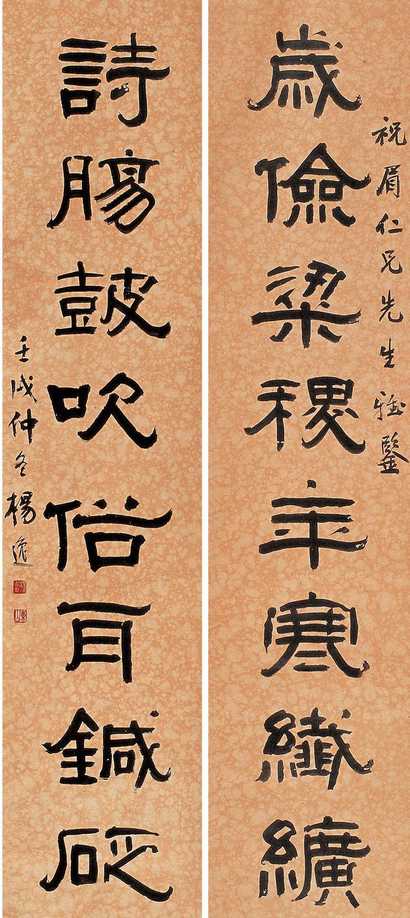 祝眉仁兄先生雅鑒
歲儉粱稷年寒纖纊
詩腸鼓吹俗耳鍼砭
壬戌仲冬楊逸